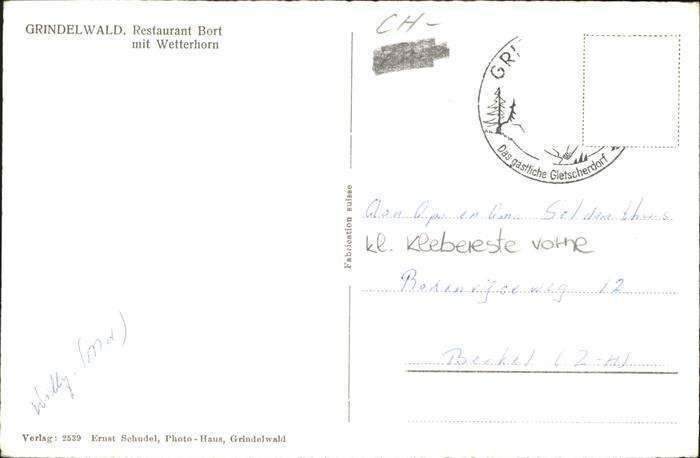 GRINDELWALD. Restaurant Bort
mit Wetterhorn
CH-
GRI
Das gastliche Gletscherdorf
Fabrication suisse
Aan Opa en Oma
kl. Klebereste vorne
12
Berkel (Z-H)
Willy
Verlag: 2539 Ernst Schudel, Photo-Haus, Grindelwald